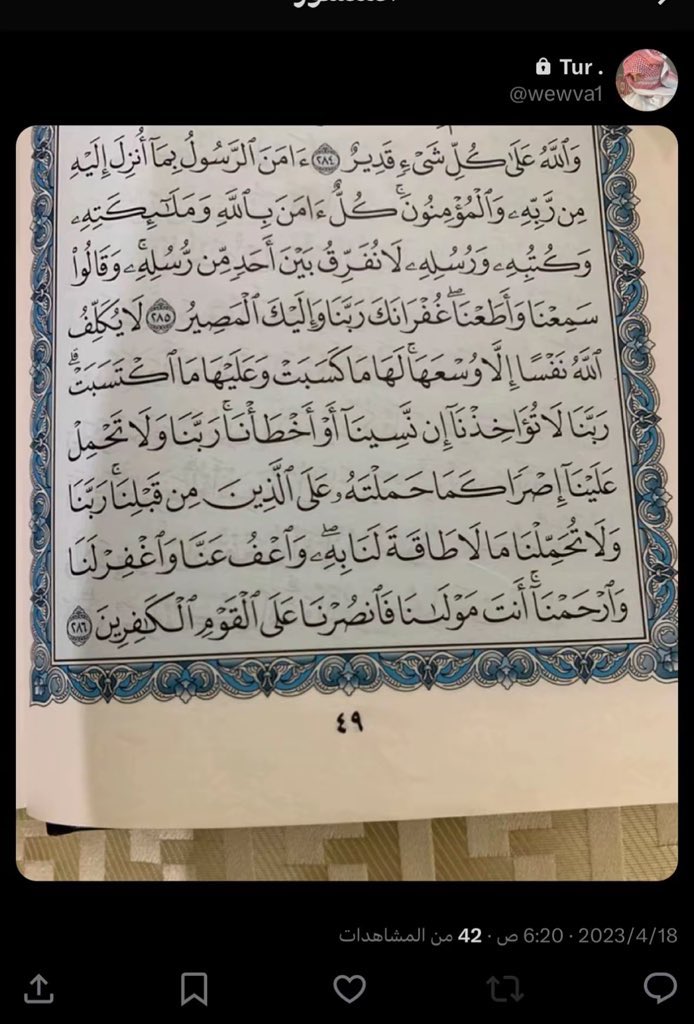 المنشور
Tur .
@wewva1
وَٱللَّهُ عَلَىٰ كُلِّ شَىْءٍ قَدِيرٌ ٢٨٤ ءَامَنَ ٱلرَّسُولُ بِمَآ أُنزِلَ إِلَيْهِ
مِن رَّبِّهِۦ وَٱلْمُؤْمِنُونَۚ كُلٌّ ءَامَنَ بِٱللَّهِ وَمَلَٰٓئِكَتِهِۦ
وَكُتُبِهِۦ وَرُسُلِهِۦ لَا نُفَرِّقُ بَيْنَ أَحَدٍ مِّن رُّسُلِهِۦۚ وَقَالُوا۟
سَمِعْنَا وَأَطَعْنَاۖ غُفْرَانَكَ رَبَّنَا وَإِلَيْكَ ٱلْمَصِيرُ ٢٨٥ لَا يُكَلِّفُ
ٱللَّهُ نَفْسًا إِلَّا وُسْعَهَاۚ لَهَا مَا كَسَبَتْ وَعَلَيْهَا مَا ٱكْتَسَبَتْۗ
رَبَّنَا لَا تُؤَاخِذْنَآ إِن نَّسِينَآ أَوْ أَخْطَأْنَاۚ رَبَّنَا وَلَا تَحْمِلْ
عَلَيْنَآ إِصْرًا كَمَا حَمَلْتَهُۥ عَلَى ٱلَّذِينَ مِن قَبْلِنَاۚ رَبَّنَا
وَلَا تُحَمِّلْنَا مَا لَا طَاقَةَ لَنَا بِهِۦۖ وَٱعْفُ عَنَّا وَٱغْفِرْ لَنَا
وَٱرْحَمْنَآۚ أَنتَ مَوْلَىٰنَا فَٱنصُرْنَا عَلَى ٱلْقَوْمِ ٱلْكَٰفِرِينَ ٢٨٦
٤٩
2023/4/18 · 6:20 ص · 42 من المشاهدات